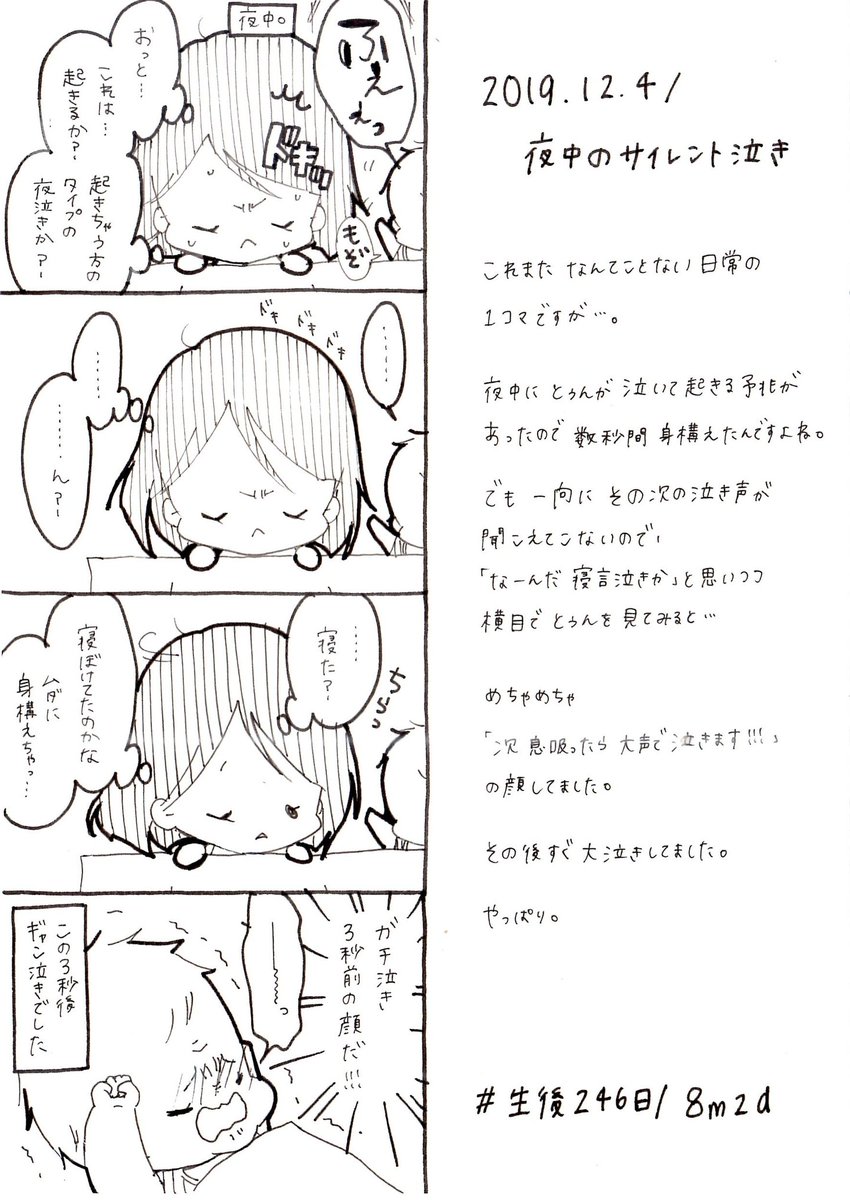 夜中。
ふぇぇっ
ドキッ
もぞ
おっと…
これは…
起きるか?
起きちゃう方の
タイプの
夜泣きか?
………
ドキドキドキ
………
………ん?
……
寝た?
ちらっ
寝ぼけてたのかな
ムダに
身構えちゃっ…
ガチ泣き
3秒前の顔だ!!!
っ
この3秒後
ギャン泣きでした
2019.12.4/
夜中のサイレント泣き
これまた なんてことない日常の
1コマですが…。
夜中に とぅんが 泣いて起きる予兆が
あったので 数秒間 身構えたんですよね。
でも 一向に その次の泣き声が
聞こえてこないので、
「なーんだ 寝言泣きか」と思いつつ
横目で とぅんを 見てみると…
めちゃめちゃ
「次 息吸ったら 大声で泣きます!!!」
の顔してました。
その後すぐ 大泣きしてました。
やっぱり。
#生後246日/ 8m2d